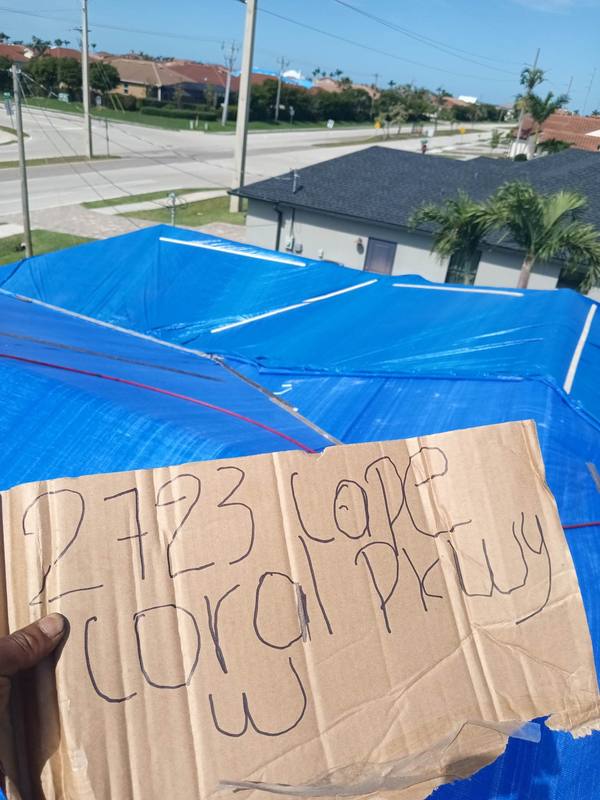 2723 Cape
Coral Pkwy
W